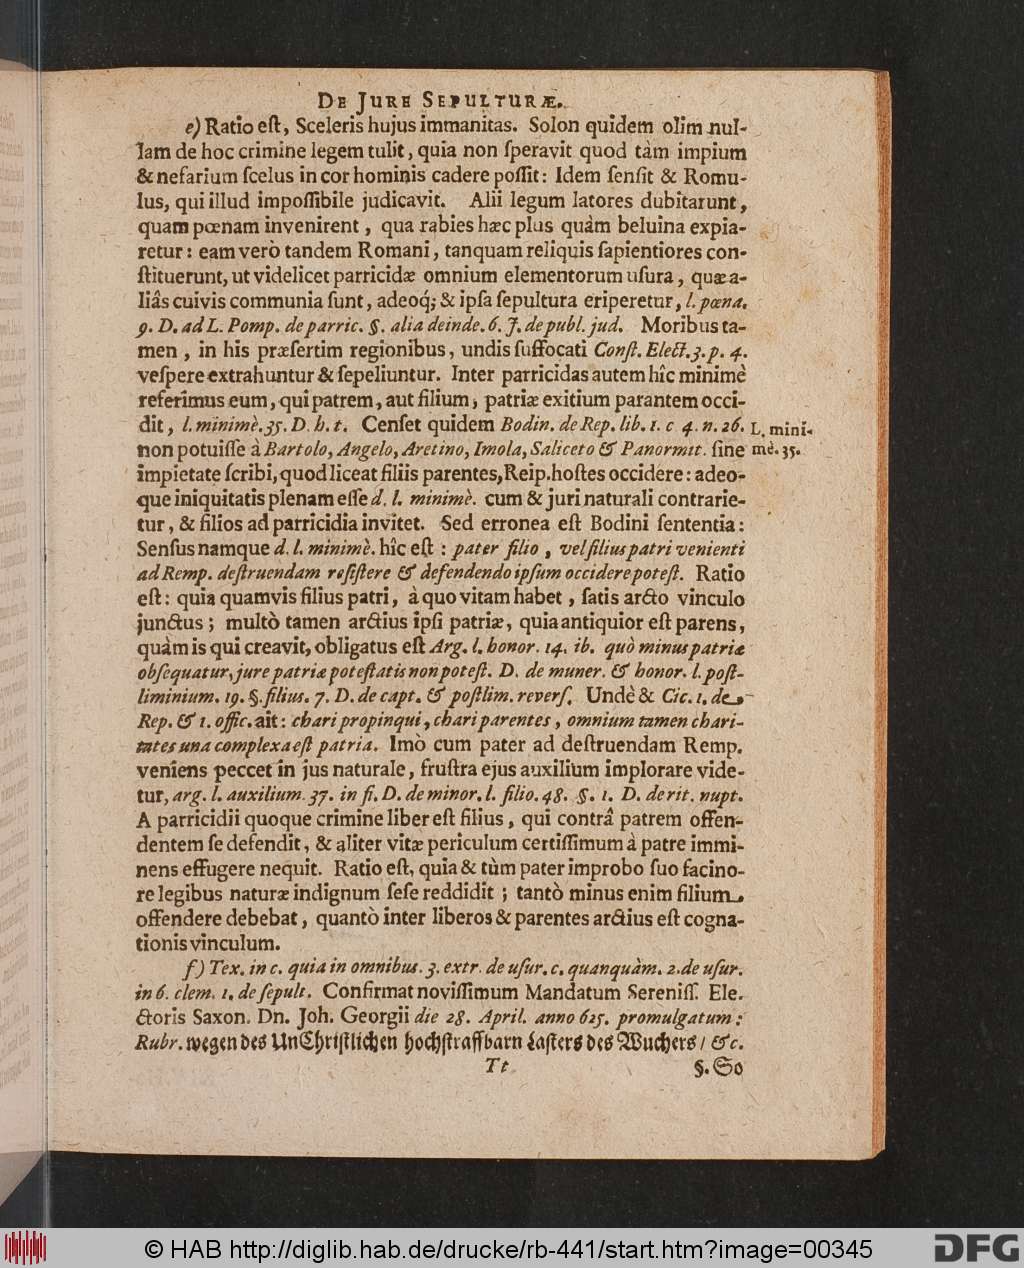 DE JURE SEPULTURÆ.
e) Ratio eſt, Sceleris hujus immanitas. Solon quidem olim nul-
lam de hoc crimine legem tulit, quia non ſperavit quod tàm impium
& nefarium ſcelus in cor hominis cadere poſſit: Idem ſenſit & Romu-
lus, qui illud impoſſibile judicavit. Alii legum latores dubitarunt,
quam pœnam invenirent, qua rabies hæc plus quàm beluina expia-
retur: eam verò tandem Romani, tanquam reliquis ſapientiores con-
ſtituerunt, ut videlicet parricidæ omnium elementorum uſura, quæ a-
liâs cuivis communia ſunt, adeoq́; & ipſa ſepultura eriperetur, l. pœna.
9. D. ad L. Pomp. de parric. §. alia deinde. 6. J. de publ. jud. Moribus ta-
men, in his præſertim regionibus, undis ſuffocati Conſt. Elect. 3. p. 4.
veſpere extrahuntur & ſepeliuntur. Inter parricidas autem hîc minimè
referimus eum, qui patrem, aut filium, patriæ exitium parantem occi-
dit, l. minimè. 35. D. h. t. Cenſet quidem Bodin. de Rep. lib. 1. c 4. n. 26.
L. mini-
non potuiſſe à Bartolo, Angelo, Aretino, Imola, Saliceto & Panormit. ſine
mè. 35.
impietate ſcribi, quod liceat filiis parentes, Reip. hoſtes occidere: adeo-
que iniquitatis plenam eſſe d. l. minimè. cum & juri naturali contrarie-
tur, & filios ad parricidia invitet. Sed erronea eſt Bodini ſententia:
Senſus namque d. l. minimè. hîc eſt: pater filio, vel filius patri venienti
ad Remp. deſtruendam reſiſtere & defendendo ipſum occidere poteſt. Ratio
eſt: quia quamvis filius patri, à quo vitam habet, ſatis arcto vinculo
junctus; multò tamen arctius ipſi patriæ, quia antiquior eſt parens,
quàm is qui creavit, obligatus eſt Arg. l. honor. 14. ib. quò minus patriæ
obſequatur, jure patriæ poteſtatis non poteſt. D. de muner. & honor. l. poſt-
liminium. 19. §. filius. 7. D. de capt. & poſtlim. reverſ. Undè & Cic. 1. de
Rep. & 1. offic. ait: chari propinqui, chari parentes, omnium tamen chari-
tates una complexa eſt patria. Imò cum pater ad deſtruendam Remp.
veniens peccet in jus naturale, fruſtra ejus auxilium implorare vide-
tur, arg. l. auxilium. 37. in fi. D. de minor. l. filio. 48. §. 1. D. de rit. nupt.
A parricidii quoque crimine liber eſt filius, qui contrâ patrem offen-
dentem ſe defendit, & aliter vitæ periculum certiſſimum à patre immi-
nens effugere nequit. Ratio eſt, quia & tùm pater improbo ſuo facino-
re legibus naturæ indignum ſeſe reddidit; tantò minus enim filium
offendere debebat, quantò inter liberos & parentes arctius eſt cogna-
tionis vinculum.
f) Tex. in c. quia in omnibus. 3. extr. de uſur. c. quanquàm. 2. de uſur.
in 6. clem. 1. de ſepult. Confirmat noviſſimum Mandatum Sereniſſ. Ele-
ctoris Saxon. Dn. Joh. Georgii die 28. April. anno 625. promulgatum:
Rubr. wegen des UnChriſtlichen hochſtraffbarn Laſters des Wuchers / &c.
Tt
§. So
© HAB http://diglib.hab.de/drucke/rb-441/start.htm?image=00345
DFG